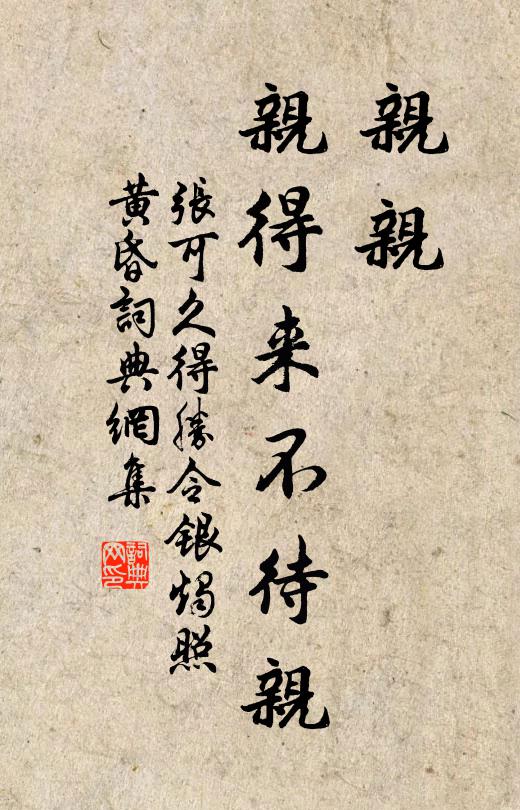 親親
親得来不待親
張可久得勝令銀燭照
黄昏詞典網集
詞典
网印